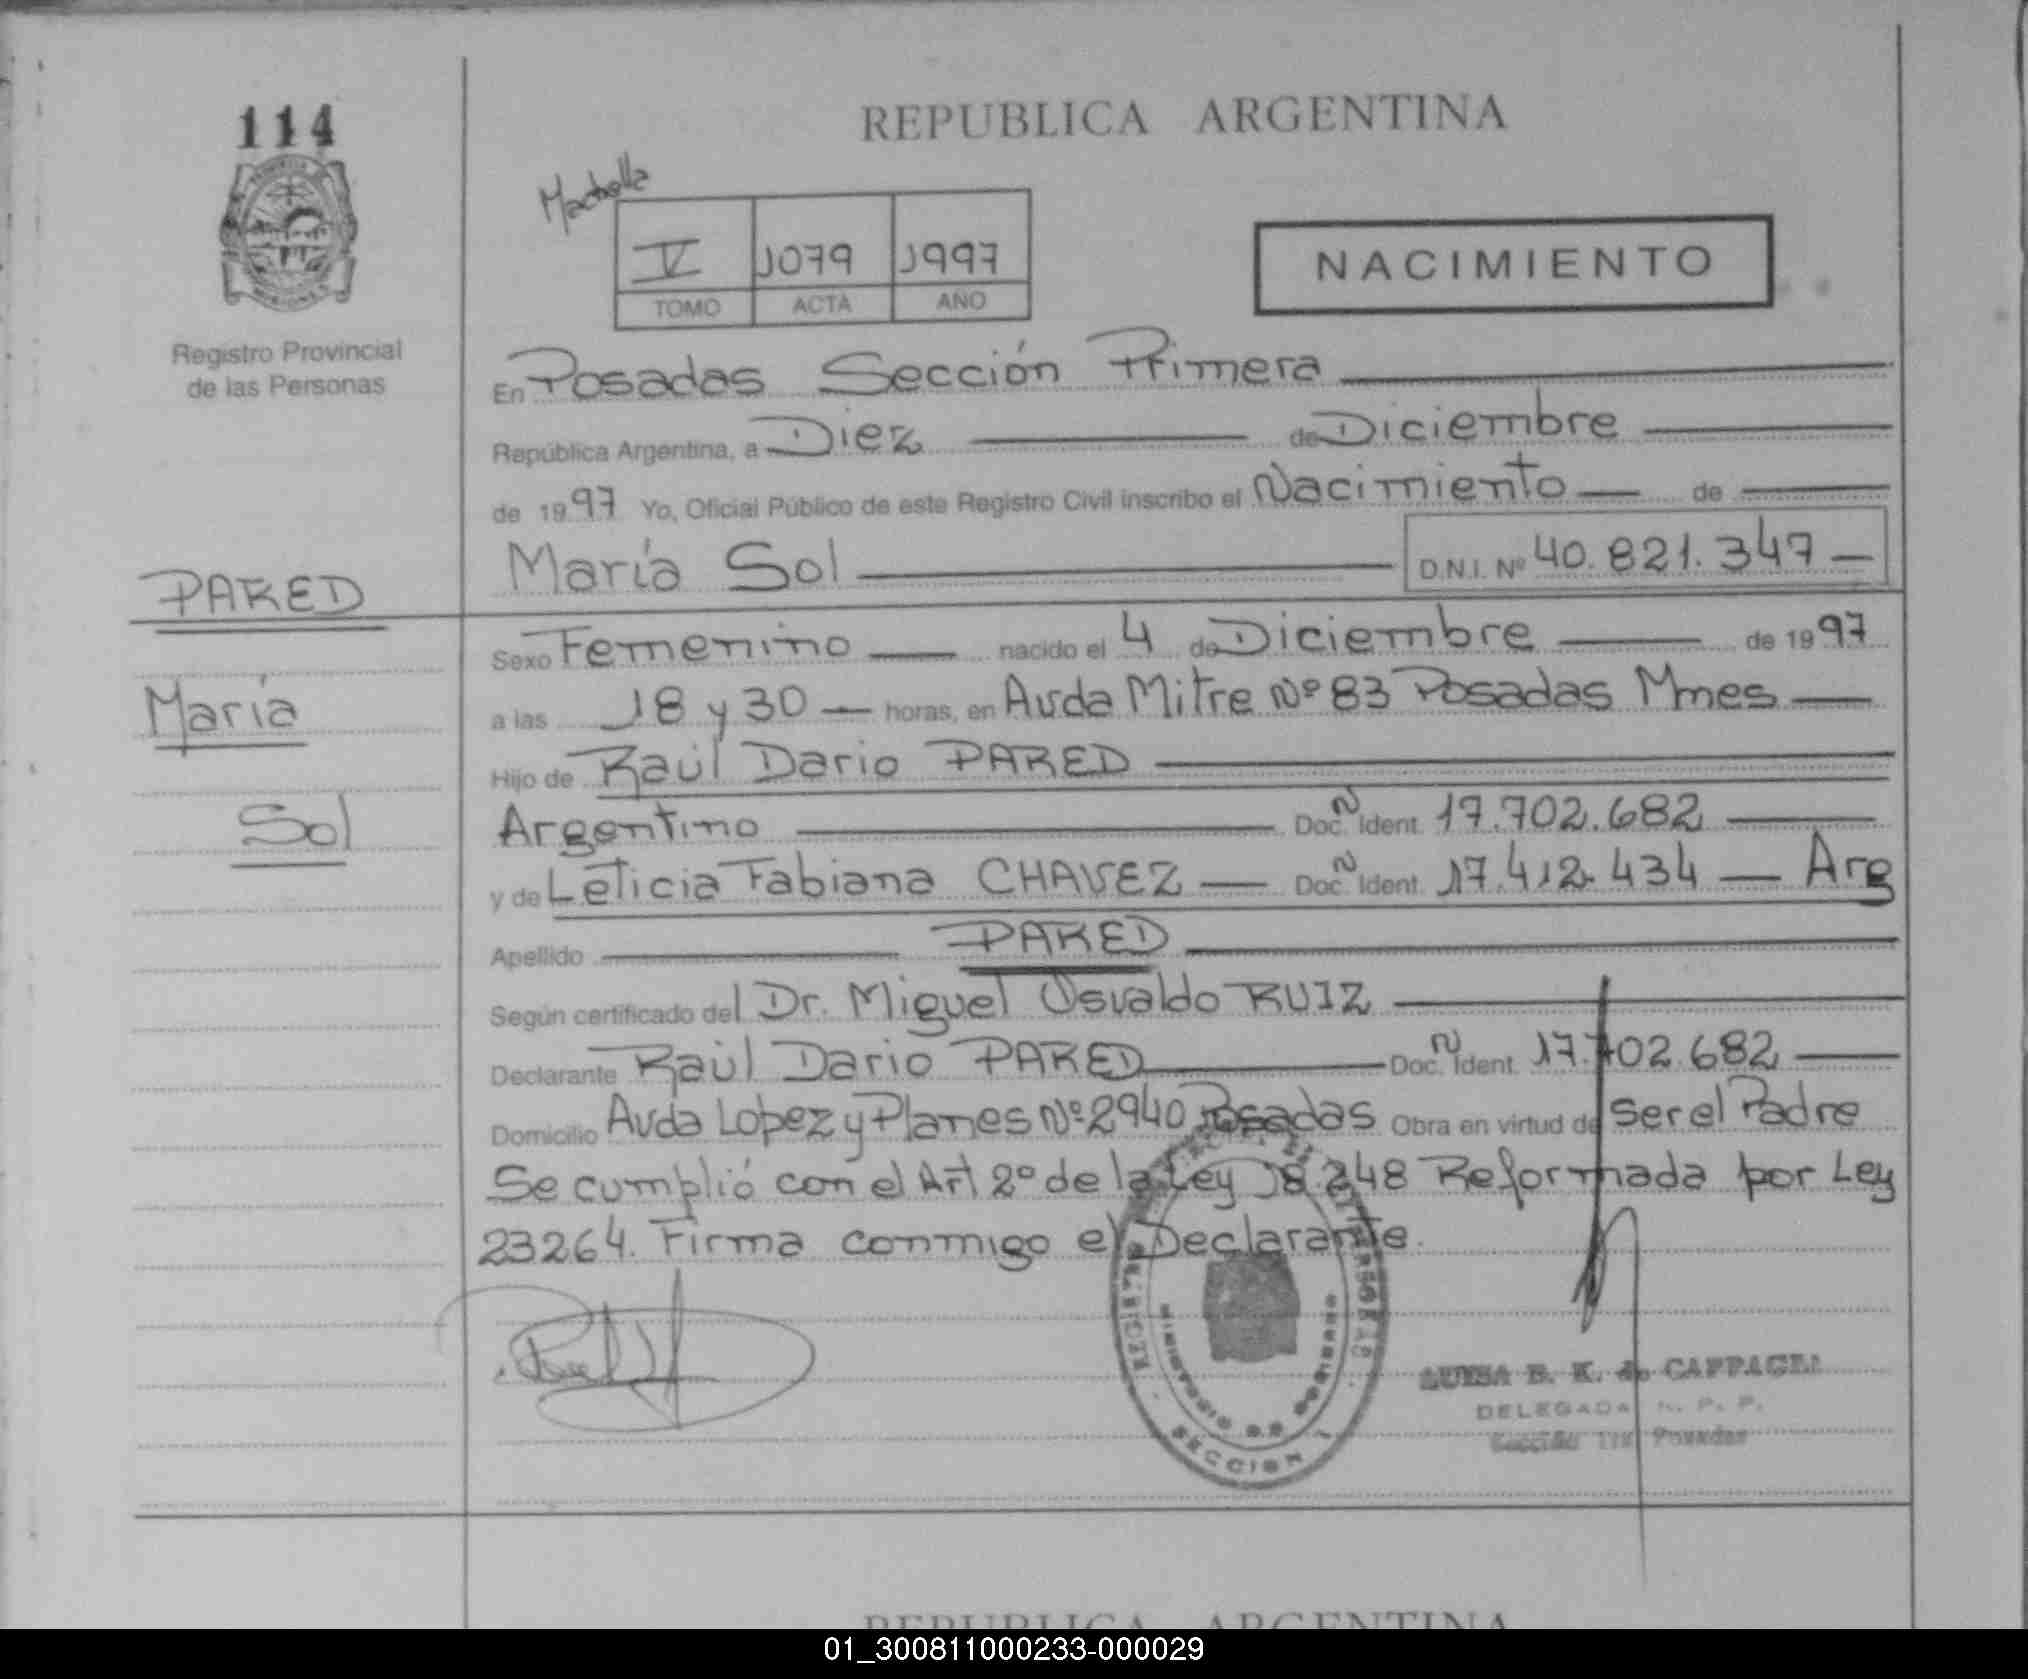 114
REPUBLICA ARGENTINA
V 1079 1997
TOMO ACTA AÑO
NACIMIENTO
Registro Provincial
de las Personas
En Posadas Sección Primera
República Argentina, a Diez de Diciembre
de 1997 Yo, Oficial Público de este Registro Civil inscribo el Nacimiento de
María Sol D.N.I. Nº 40.821.347
PARED
María
Sol
Sexo Femenino nacido el 4 de Diciembre de 1997
a las 18 y 30 horas, en Avda Mitre Nº 83 Posadas Mnes
Hijo de Raúl Dario PARED
Argentino Doc. N Ident. 17.702.682
y de Leticia Fabiana CHAVEZ Doc. N Ident. 17.412.434 Arg
Apellido PARED
Según certificado del Dr. Miguel Osvaldo RUIZ
Declarante Raúl Dario PARED Doc. N Ident. 17.702.682
Domicilio Avda Lopez y Planes Nº 2940 Posadas Obra en virtud de ser el Padre
Se cumplió con el Art 2º de la Ley 18.248 Reformada por Ley
23264. Firma conmigo el Declarante.
MINISTERIO DE GOBIERNO
SECCION 1
LUISA B. K. de
DELEGADA R. P. P.
Sección 1ra Posadas
REPUBLICA ARGENTINA
01_300811000233-000029